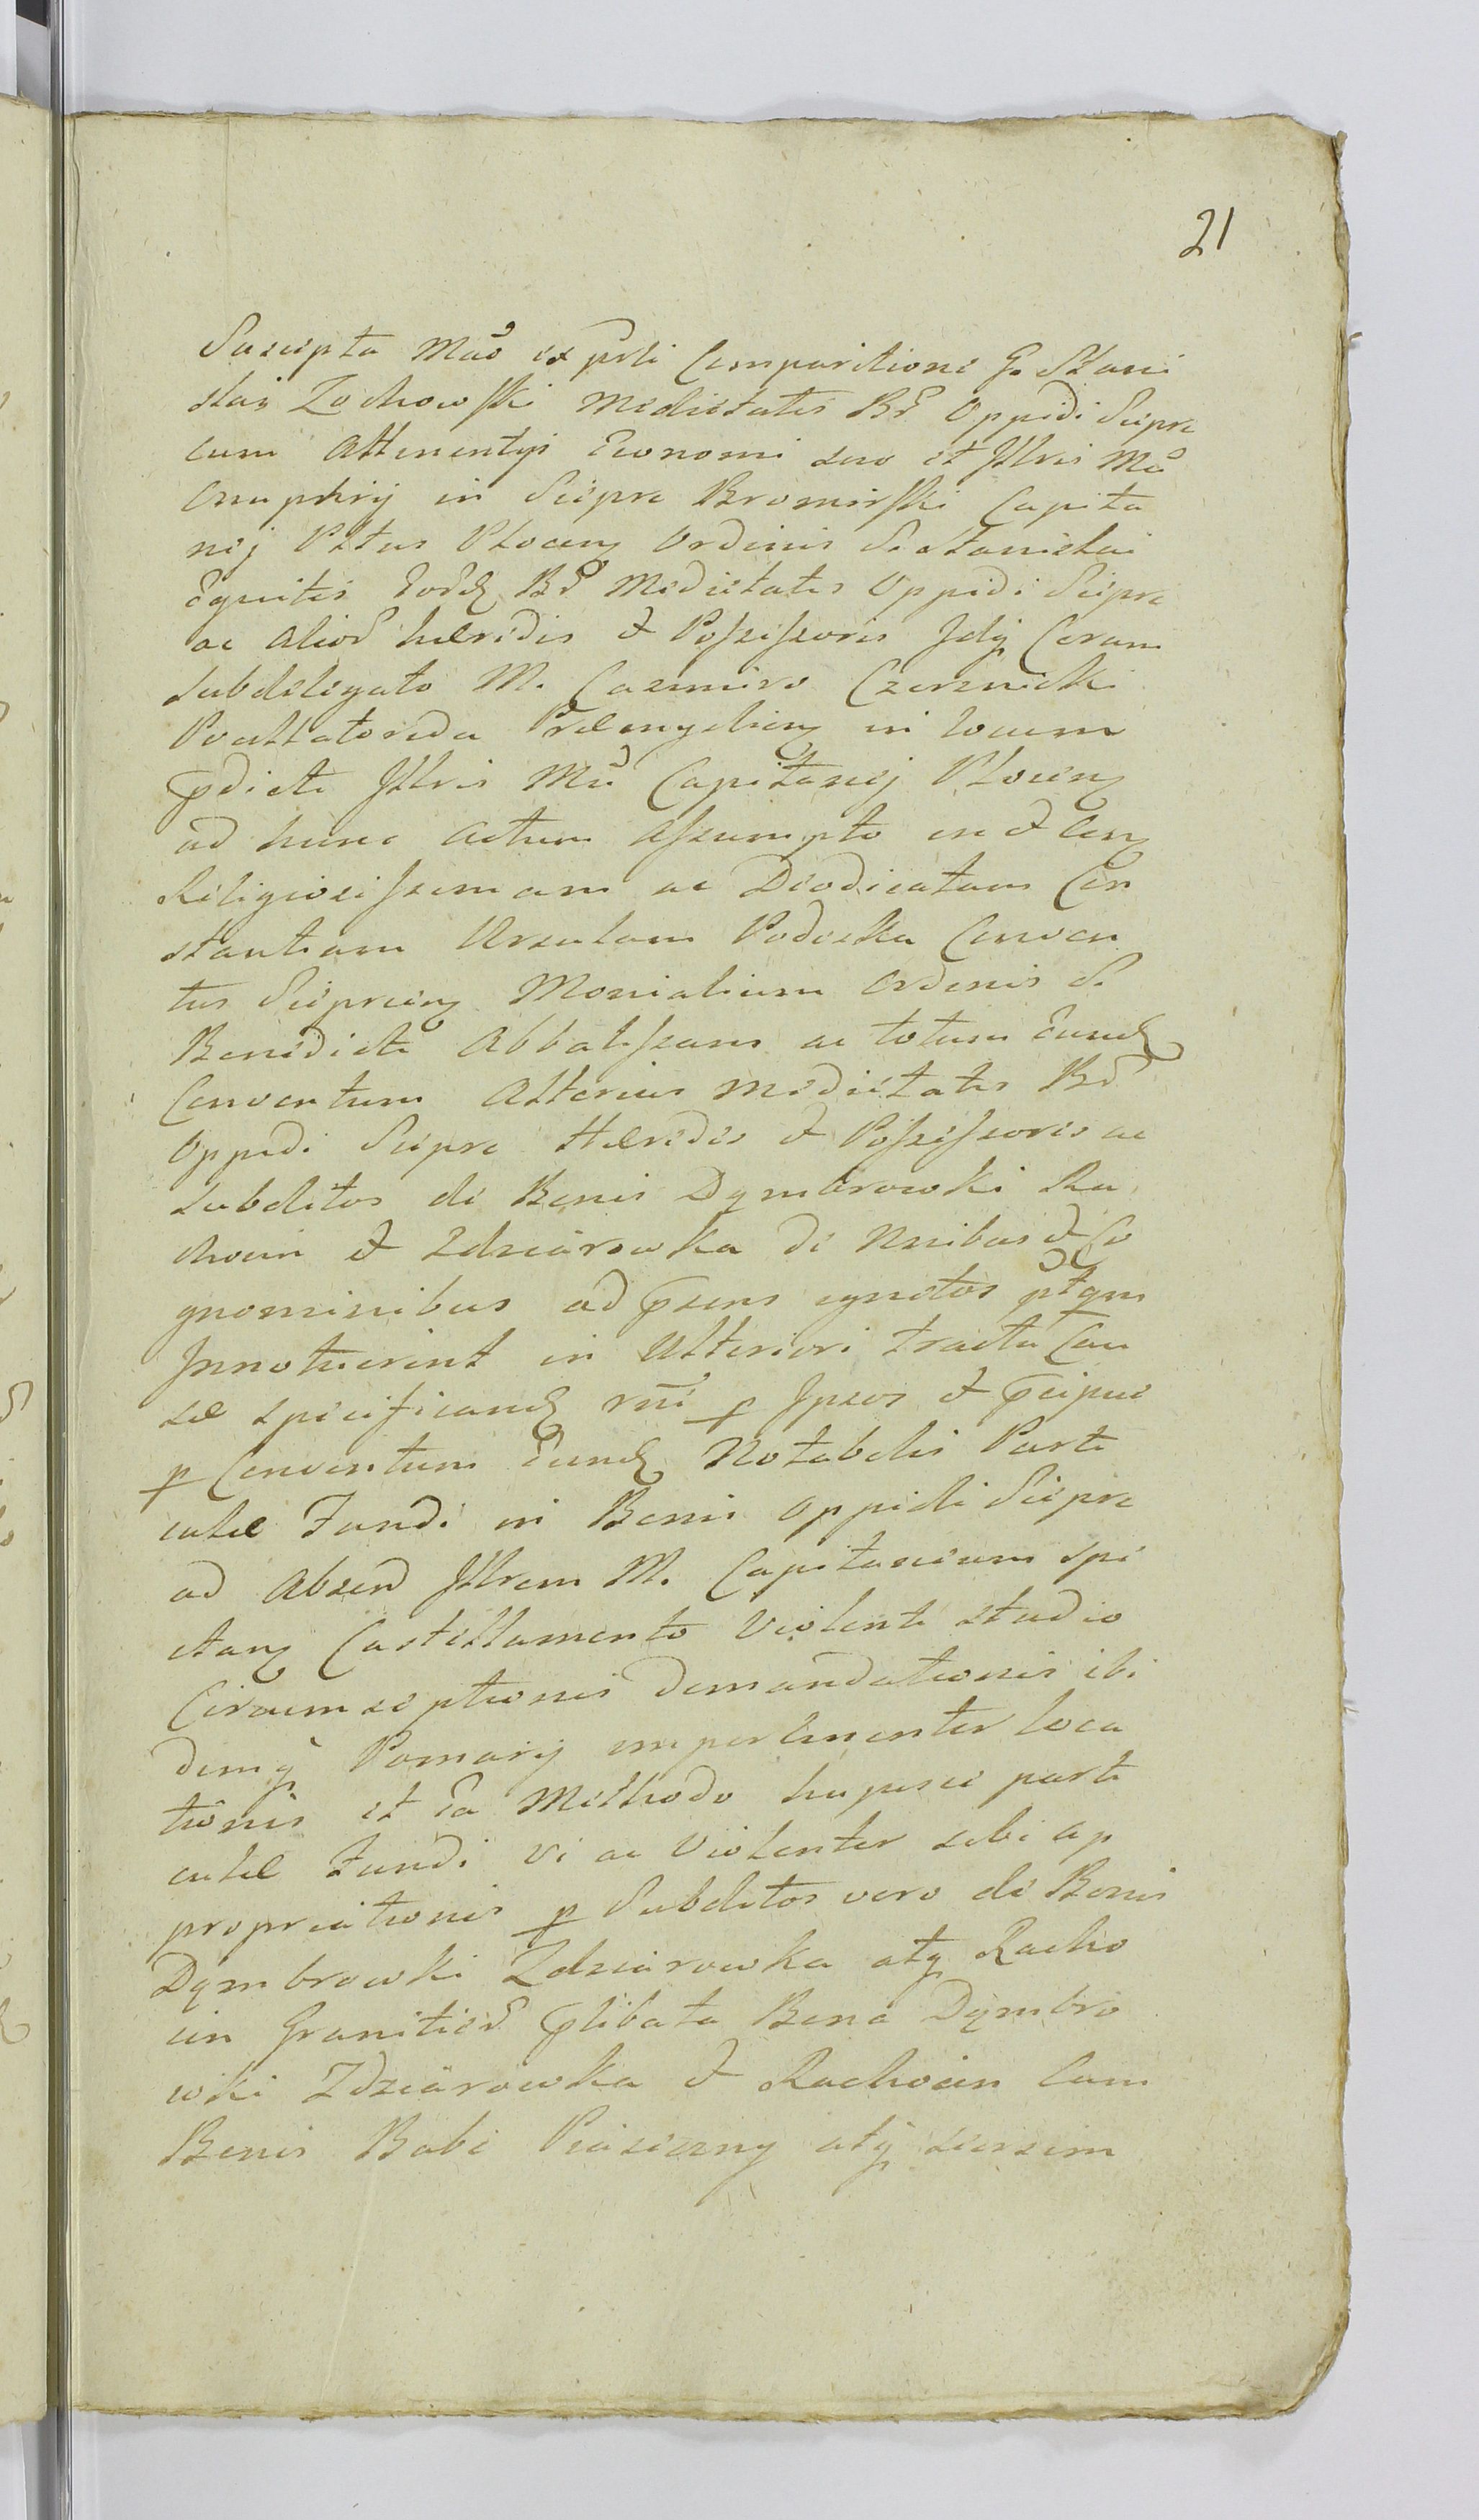 21
Suscepta Mão ex prti Comparitione G. Stani
slai Zochowski Medietatis Br̃ Oppidi Sieprc
cum Attinentijs Economi suo et Jllris Mci
Onuphrij in Sieprc Bromirski Capita
nej Pttus Plocen Ordinis S. Stanislai
Equitis Eord Br̃ Medietatis Oppidi Sieprc
ac alior hæredis & Possessoris Jdq Coram
subdelegato M. Casimiro Czerznicki
Pocillatorida Præmyslien in locum
pdicti Jllris Mci Capitanej Plocen
ad hunc actum assumpto in & Con
Religiosissimam ac Deodicatam Con
stantiam Ursulam Podoska Conven
tus Sieprcien Monialium Ordinis S.
Benedicti Abbatissam ac totum Eund
Conventum Alterius Medietatis Br̃
Oppidi Sieprc Hæredis & Possessoris ac
subditos de Bonis Dąmbrowki Ra
chocin & Zdziarowka de Nnibus & Co
gnominibus ad psens ignotos ptqm
Jnnotuerint in Ulteriori tractu Cau
sæ specificand rñe p Jpsos & pcipue
p Conventum Eund Notabilis Parti
culæ Fundi in Bonis Oppidi Sieprc
ad Absend Jllrem M. Capitaneum spe
ctan Castellamento Violenti studio
Circumseptionis demandationis ibi
demq Pomarij impertinenter loca
tionis et Ea Methodo hujusce parti
culæ Fundi vi ac Violenter sibi ap
propriationis p Subditos vero de Bonis
Dąmbrowki Zdziarowka atq Racho
cin Granitier plibata Bona Dąmbro
wki Zdziarowka & Rachocin Cum
Bonis Babi Piaseczny atq seorsim